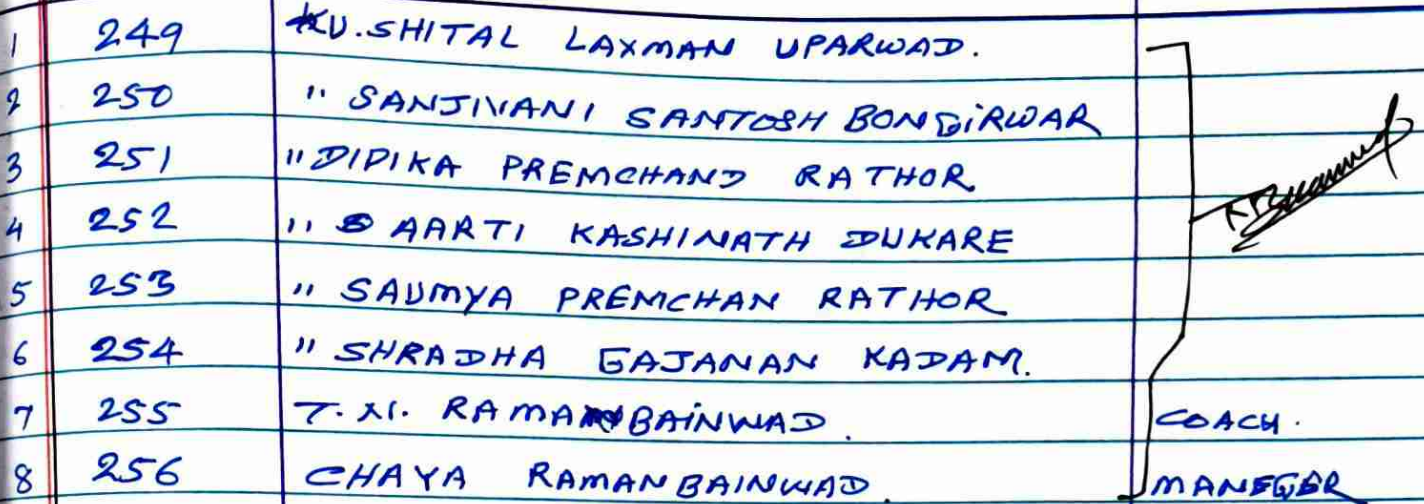 1 249 KU.SHITAL LAXMAN UPARWAD.
2 250 " SANJIVANI SANTOSH BONGIRWAR
3 251 " DIPIKA PREMCHAND RATHOR
4 252 " AARTI KASHINATH DUKARE
5 253 " SAUMYA PREMCHAN RATHOR
6 254 " SHRADHA GAJANAN KADAM.
7 255 T.N. RAMANBAINWAD. COACH.
8 256 CHAYA RAMANBAINWAD. MANEGER